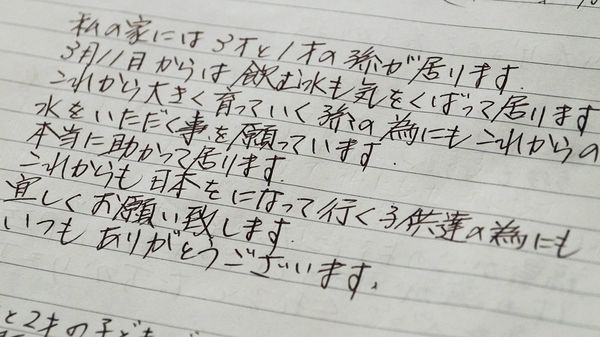 私の家には3才と1才の孫が居ります.
3月11日からは飲む水も気をくばって居ります
これから大きく育っていく孫の為にもこれからの
水をいただく事を願っています.
本当に助かって居ります.
これからも日本をになって行く子供達の為にも
宜しくお願い致します.
いつもありがとうございます.
と2才の子ども